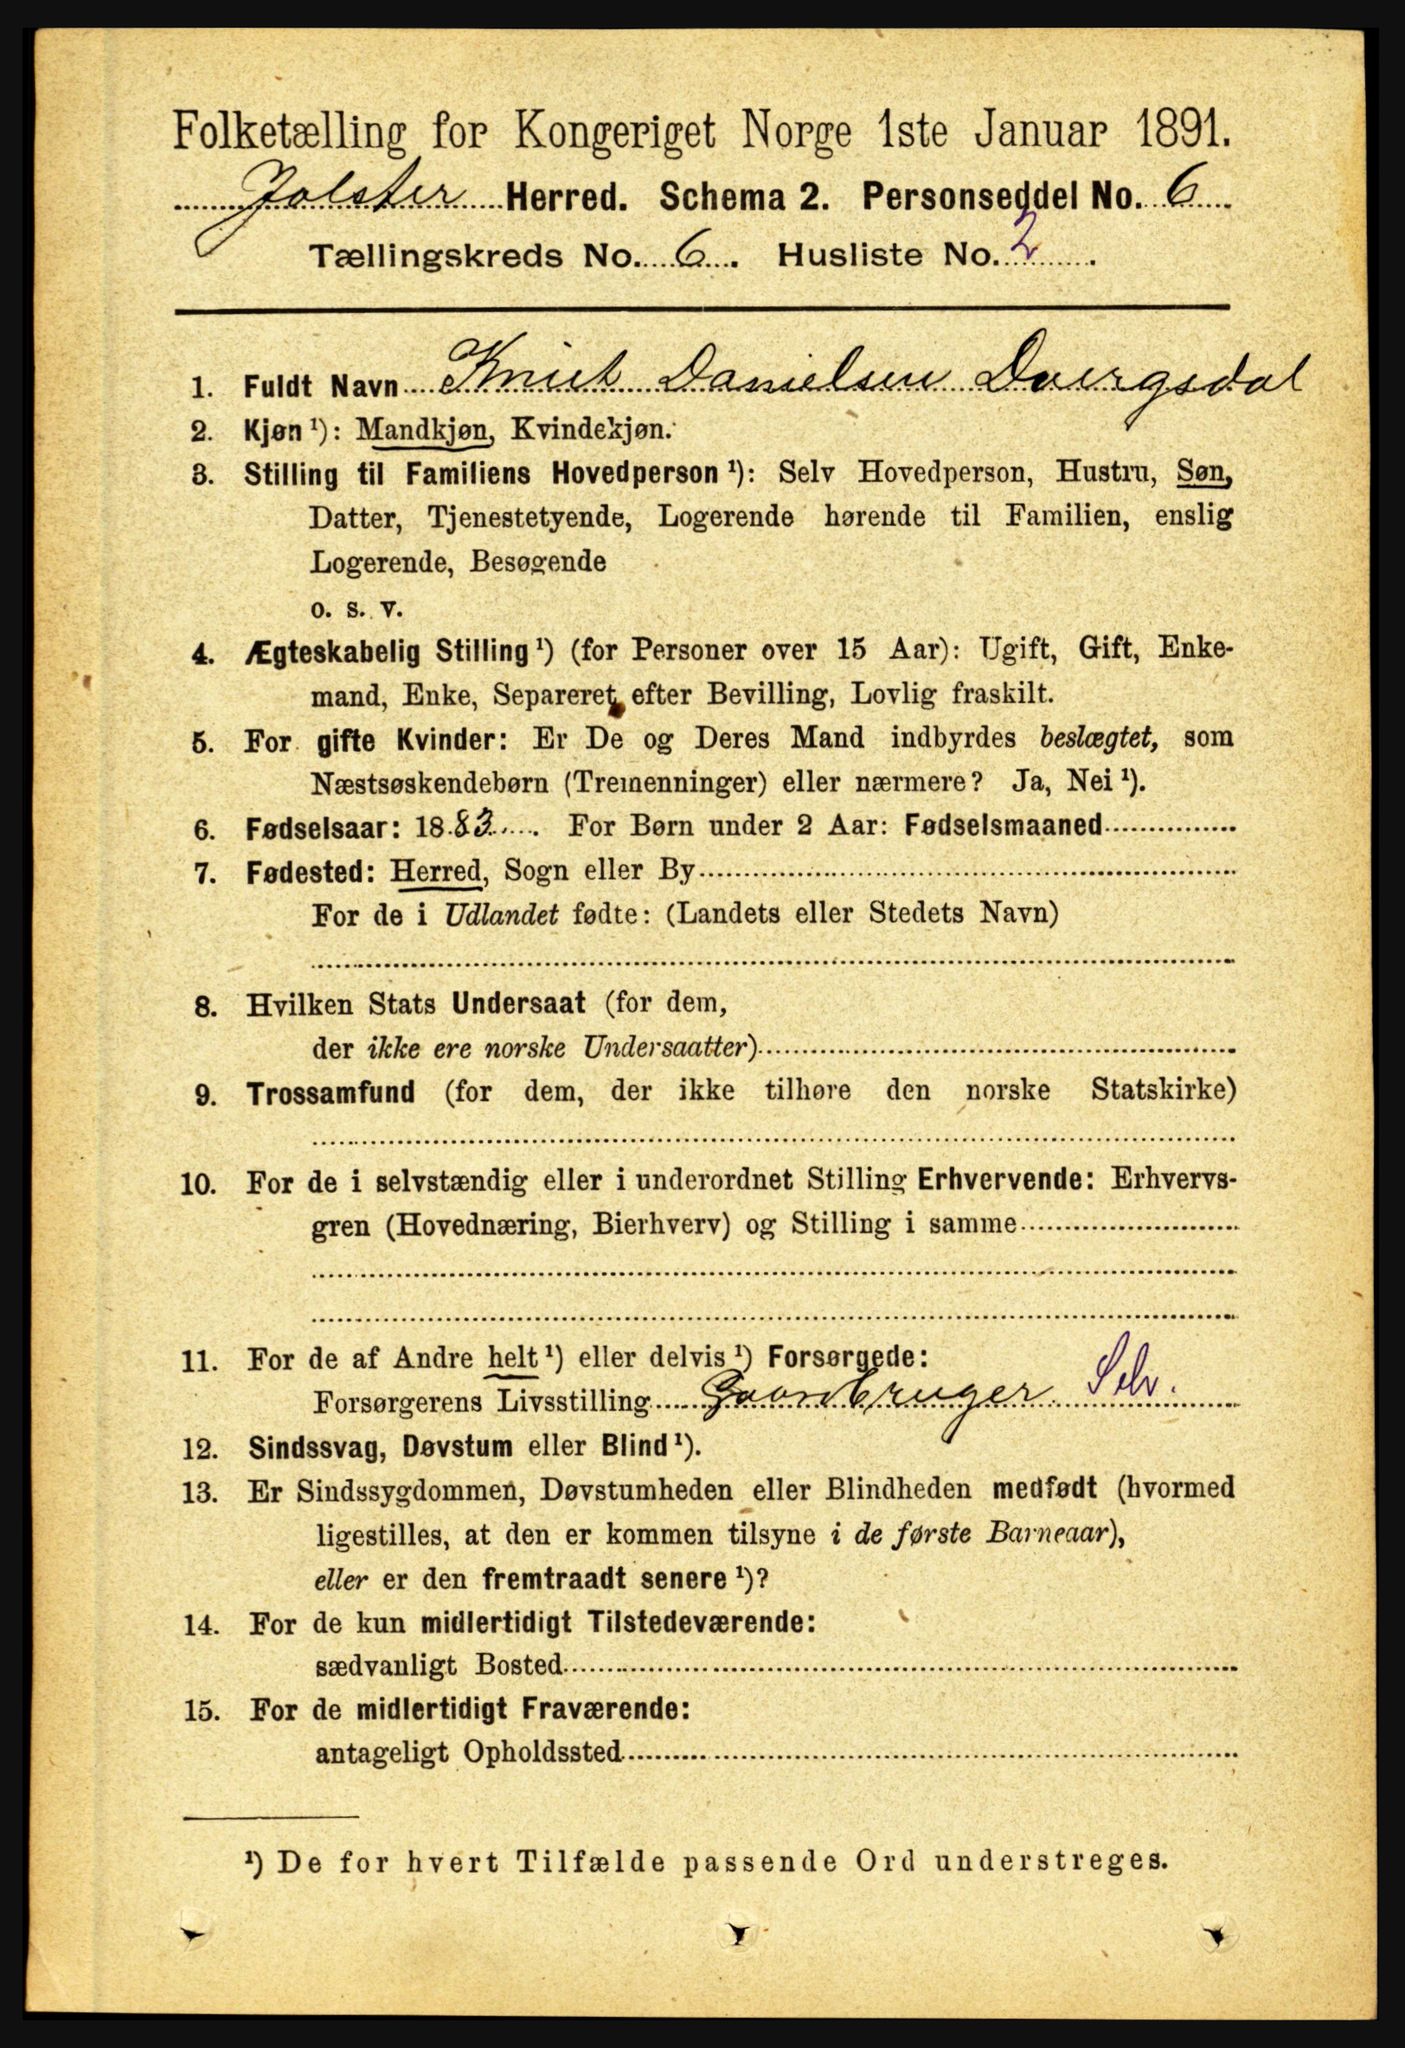 Folketælling for Kongeriget Norge 1ste Januar 1891.
Jølster Herred. Schema 2. Personseddel No. 6
Tællingskreds No. 6. Husliste No. 2.
1. Fuldt Navn Knut Danielsen Dvergsdal
2. Kjøn ¹): Mandkjøn, Kvindekjøn.
3. Stilling til Familiens Hovedperson ¹): Selv Hovedperson, Hustru, Søn,
Datter, Tjenestetyende, Logerende hørende til Familien, enslig
Logerende, Besøgende
o. s. v.
4. Ægteskabelig Stilling ¹) (for Personer over 15 Aar): Ugift, Gift, Enke-
mand, Enke, Separeret efter Bevilling, Lovlig fraskilt.
5. For gifte Kvinder: Er De og Deres Mand indbyrdes beslægtet, som
Næstsøskendebørn (Tremenninger) eller nærmere? Ja, Nei ¹).
6. Fødselsaar: 1883. For Børn under 2 Aar: Fødselsmaaned
7. Fødested: Herred, Sogn eller By
For de i Udlandet fødte: (Landets eller Stedets Navn)
8. Hvilken Stats Undersaat (for dem,
der ikke ere norske Undersaatter)
9. Trossamfund (for dem, der ikke tilhøre den norske Statskirke)
10. For de i selvstændig eller i underordnet Stilling Erhvervende: Erhvervs-
gren (Hovednæring, Bierhverv) og Stilling i samme
11. For de af Andre helt ¹) eller delvis ¹) Forsørgede:
Forsørgerens Livsstilling Gaardbruger Selv.
12. Sindssvag, Døvstum eller Blind ¹).
13. Er Sindssygdommen, Døvstumheden eller Blindheden medfødt (hvormed
ligestilles, at den er kommen tilsyne i de første Barneaar),
eller er den fremtraadt senere ¹)?
14. For de kun midlertidigt Tilstedeværende:
sædvanligt Bosted
15. For de midlertidigt Fraværende:
antageligt Opholdssted
¹) De for hvert Tilfælde passende Ord understreges.